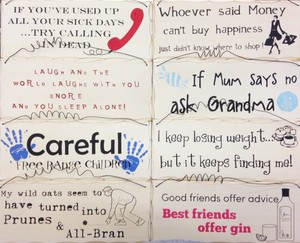 IF YOU'VE USED UP
ALL YOUR SICK DAYS
...TRY CALLING
IN DEAD
LAUGH AND THE
WORLD LAUGHS WITH YOU
SNORE
AND YOU SLEEP ALONE!
Careful
FREE RANGE CHILDREN
My wild oats seem to
have turned into
Prunes
& All-Bran
Whoever said Money
can't buy happiness
just didn't know where to shop!
If Mum says no
ask Grandma
I keep losing weight...
but it keeps finding me!
Good friends offer advice
Best friends
offer gin